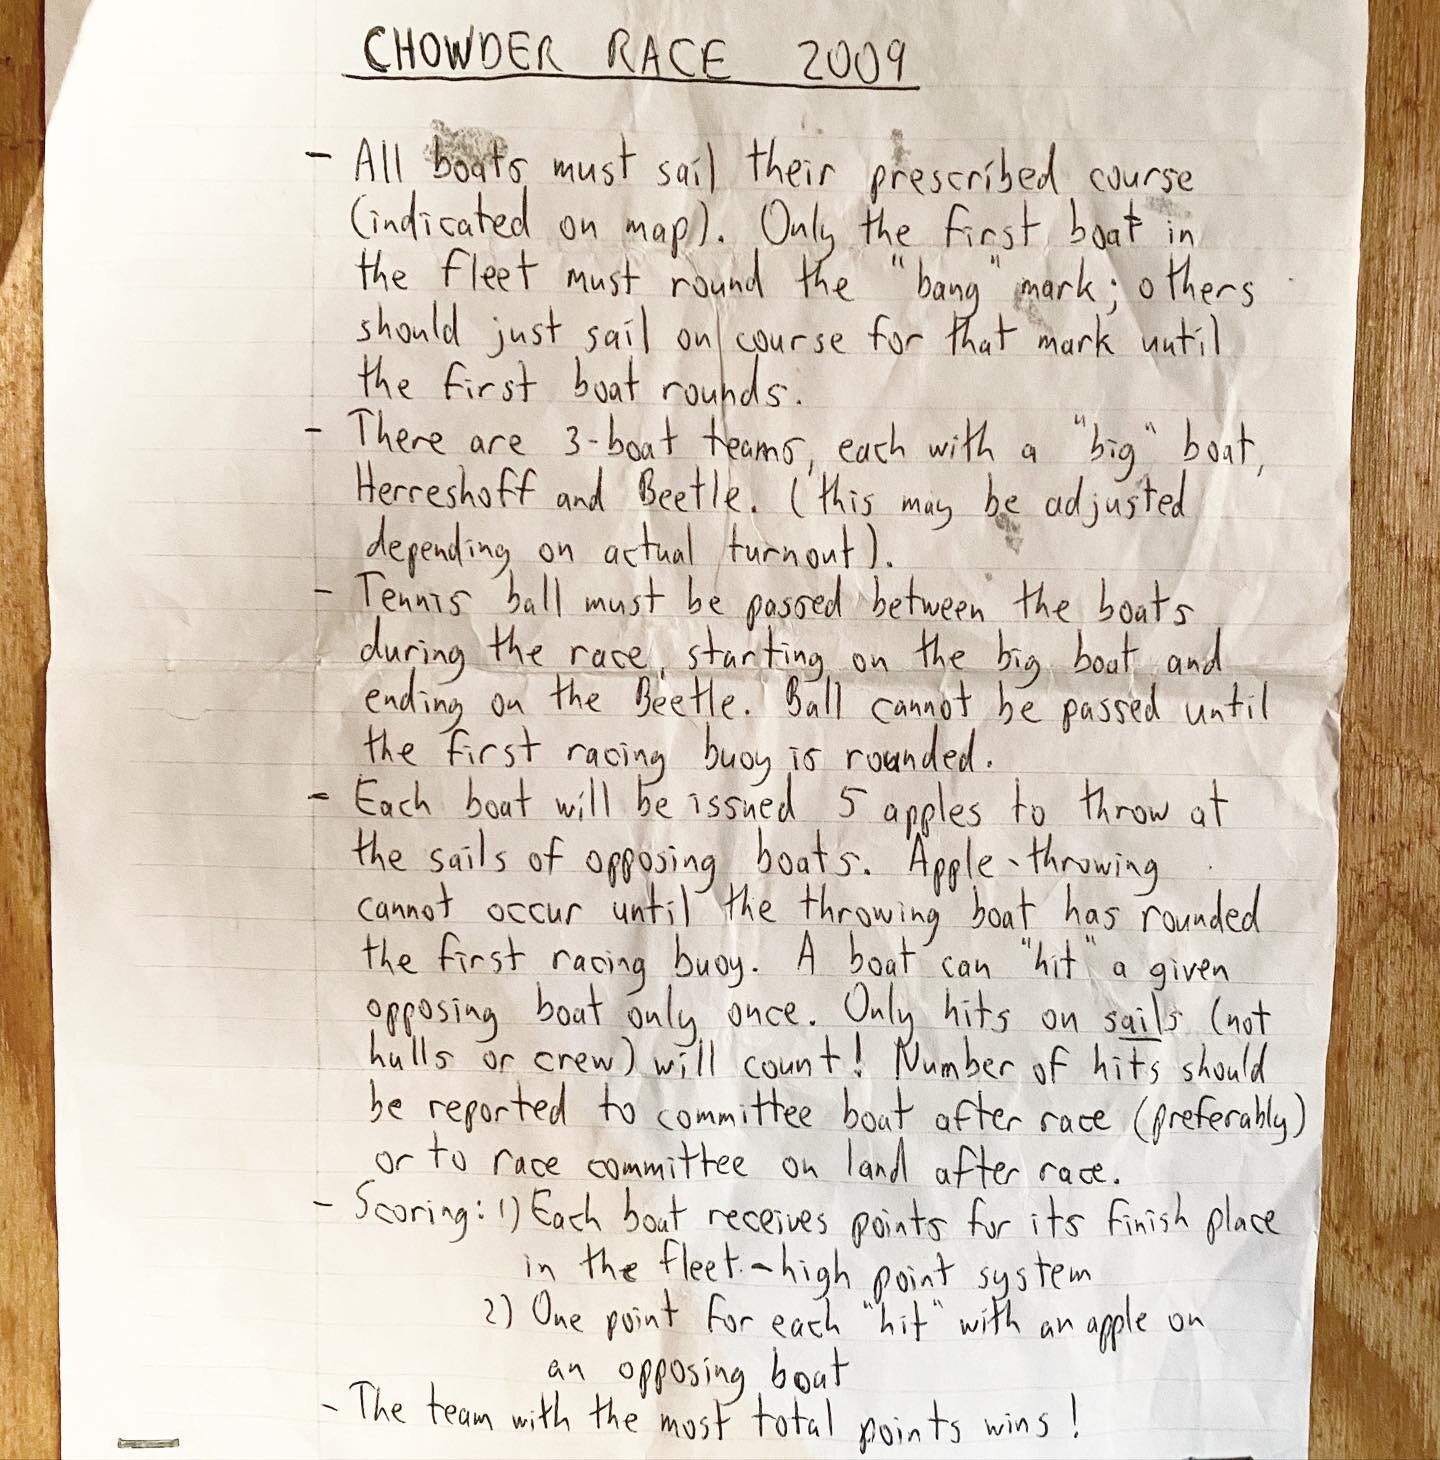 CHOWDER RACE 2009
- All boats must sail their prescribed course
(indicated on map). Only the first boat in
the fleet must round the "bang" mark; others
should just sail on course for that mark until
the first boat rounds.
- There are 3-boat teams, each with a "big" boat,
Herreshoff and Beetle. (this may be adjusted
depending on actual turnout).
- Tennis ball must be passed between the boats
during the race, starting on the big boat and
ending on the Beetle. Ball cannot be passed until
the first racing buoy is rounded.
- Each boat will be issued 5 apples to throw at
the sails of opposing boats. Apple-throwing
cannot occur until the throwing boat has rounded
the first racing buoy. A boat can "hit" a given
opposing boat only once. Only hits on sails (not
hulls or crew) will count! Number of hits should
be reported to committee boat after race (preferably)
or to race committee on land after race.
- Scoring: 1) Each boat receives points for its finish place
in the fleet - high point system
2) One point for each "hit" with an apple on
an opposing boat
- The team with the most total points wins!